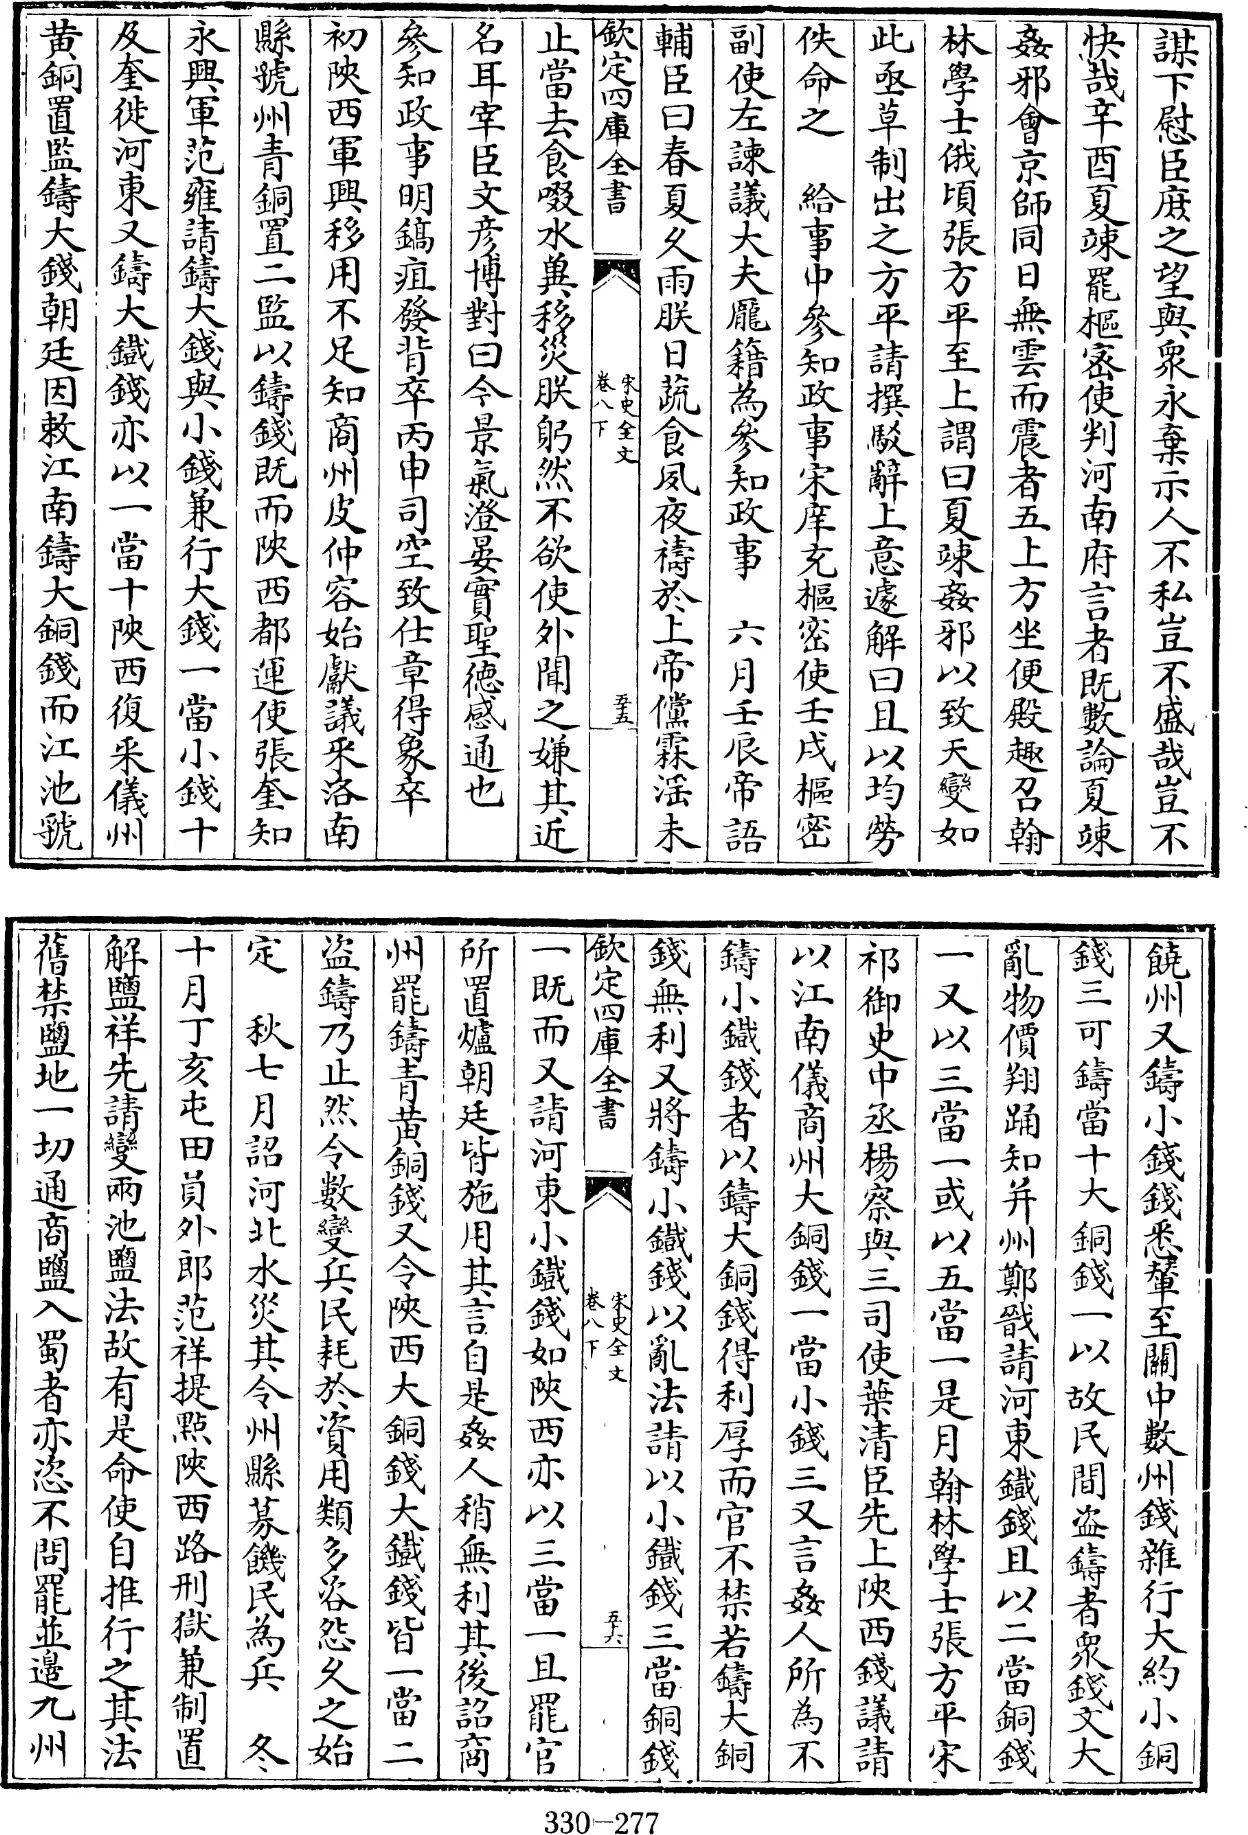 謀下慰臣庶之望與衆永棄示人不私豈不盛哉豈不
快哉辛酉夏竦罷樞密使判河南府言者既數論夏竦
姦邪會京師同日無雲而震者五上方坐便殿趣召翰
林學士俄頃張方平至上謂曰夏竦姦邪以致天變如
此亟草制出之方平請撰駁辭上意遽解曰且以均勞
佚命之　給事中參知政事宋庠充樞密使壬戌樞密
副使左諫議大夫龐籍為參知政事　六月壬辰帝語
輔臣曰春夏久雨朕日蔬食夙夜禱於上帝儻霖淫未
欽定四庫全書
宋史全文
卷八下
五十五
止當去食啜水冀移災朕躬然不欲使外聞之嫌其近
名耳宰臣文彦博對曰今景氣澄晏實聖德感通也
參知政事明鎬疽發背卒丙申司空致仕章得象卒
初陜西軍興移用不足知商州皮仲容始獻議采洛南
縣虢州青銅置二監以鑄錢既而陜西都運使張奎知
永興軍范雍請鑄大錢與小錢兼行大錢一當小錢十
及奎徙河東又鑄大鐵錢亦以一當十陜西復采儀州
黄銅置監鑄大錢朝廷因敕江南鑄大銅錢而江池虢
饒州又鑄小錢錢悉輦至關中數州錢雜行大約小銅
錢三可鑄當十大銅錢一以故民間盗鑄者衆錢文大
亂物價翔踊知并州鄭戩請河東鐵錢且以二當銅錢
一又以三當一或以五當一是月翰林學士張方平宋
祁御史中丞楊察與三司使葉清臣先上陜西錢議請
以江南儀商州大銅錢一當小錢三又言姦人所為不
鑄小鐵錢者以鑄大銅錢得利厚而官不禁若鑄大銅
錢無利又將鑄小鐵錢以亂法請以小鐵錢三當銅錢
欽定四庫全書
宋史全文
卷八下
五十六
一既而又請河東小鐵錢如陜西亦以三當一且罷官
所置爐朝廷皆施用其言自是姦人稍無利其後詔商
州罷鑄青黄銅錢又令陜西大銅錢大鐵錢皆一當二
盗鑄乃止然令數變兵民耗於資用類多咨怨久之始
定　秋七月詔河北水災其令州縣募饑民為兵　冬
十月丁亥屯田員外郎范祥提點陜西路刑獄兼制置
解鹽祥先請變兩池鹽法故有是命使自推行之其法
舊禁鹽地一切通商鹽入蜀者亦恣不問罷並邊九州
330-277